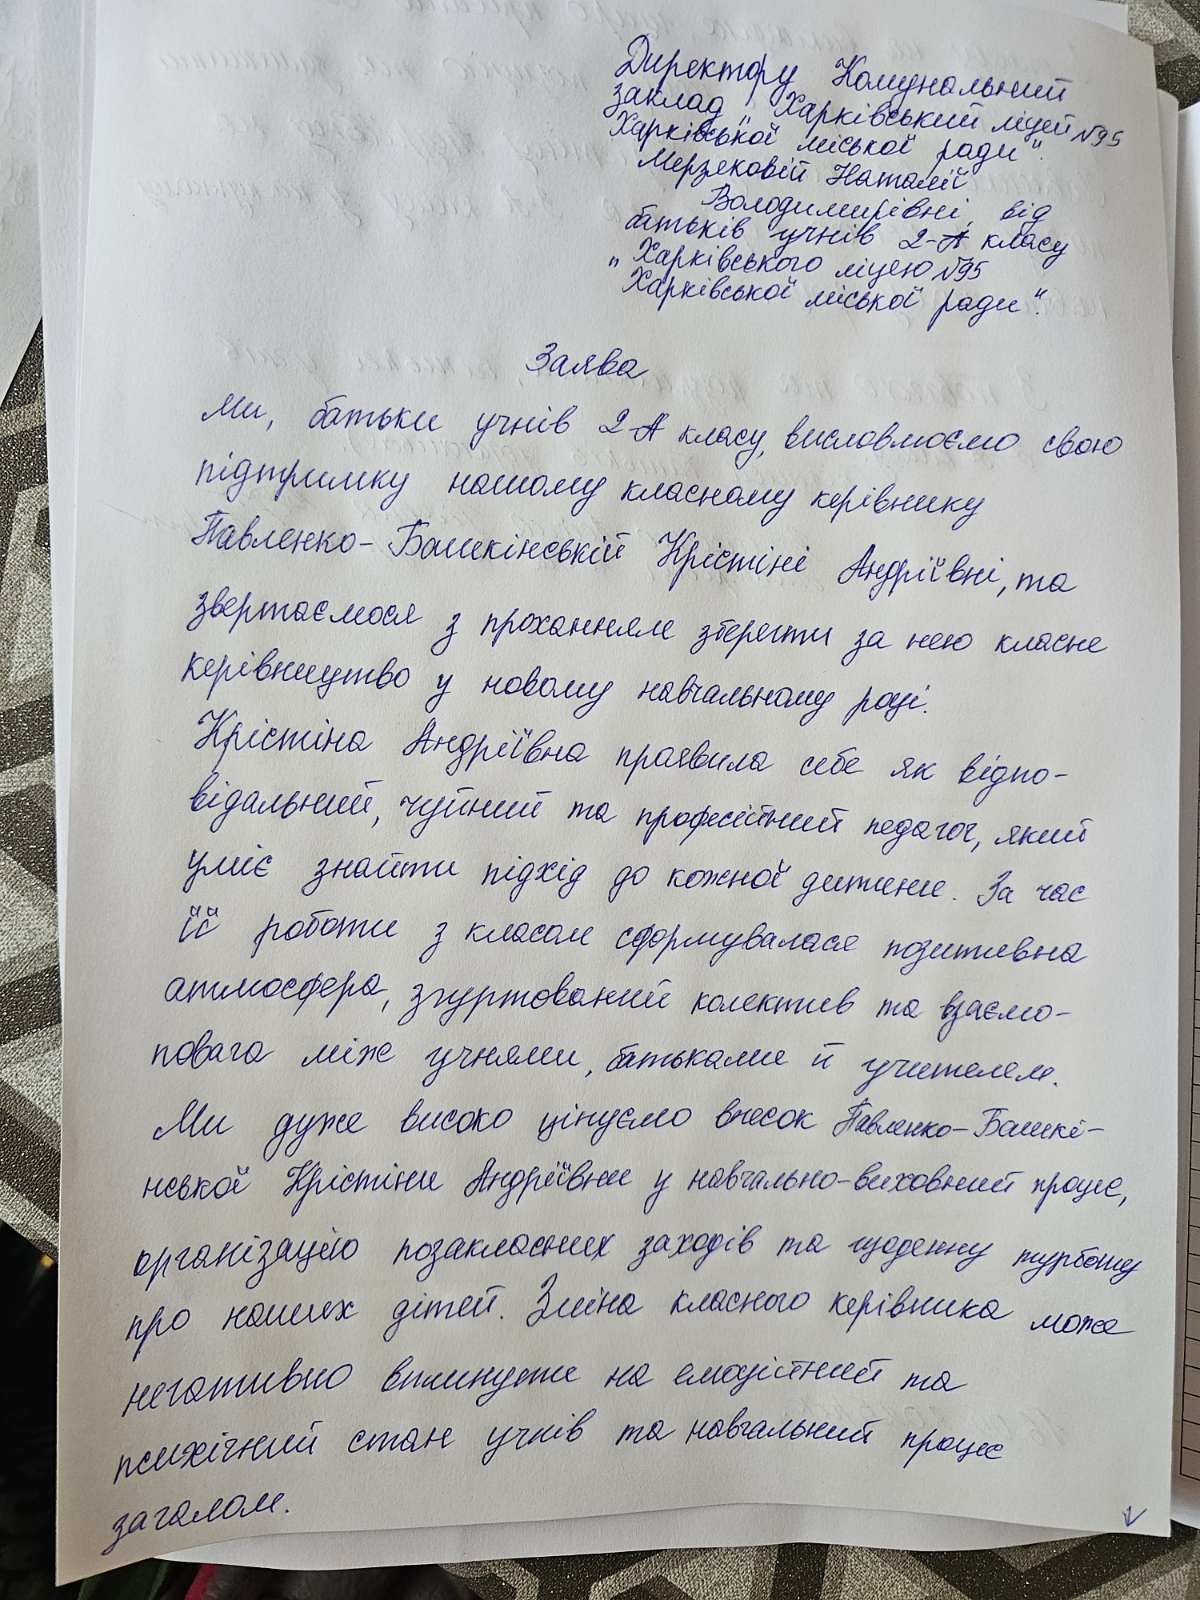 Директору Комунальний
заклад „Харківський ліцей №95
Харківської міської ради".
Мерзляковій Наталії
Володимирівні, від
батьків учнів 2-А класу
„Харківського ліцею №95
Харківської міської ради".
Заява
Ми, батьки учнів 2-А класу, висловлюємо свою
підтримку нашому класному керівнику
Павленко-Башкінській Крістіні Андріївні, та
звертаємося з проханням зберегти за нею класне
керівництво у новому навчальному році.
Крістіна Андріївна проявила себе як відпо-
відальний, чуйний та професійний педагог, який
уміє знайти підхід до кожної дитини. За час
її роботи з класом сформувалася позитивна
атмосфера, згуртований колектив та взаємо-
повага між учнями, батьками й учителем.
Ми дуже високо цінуємо внесок Павленко-Башкі-
нської Крістіни Андріївни у навчально-виховний процес,
організацію позакласних заходів та щоденну турботу
про наших дітей. Зміна класного керівника може
негативно вплинути на емоційний та
психічний стан учнів та навчальний процес
загалом.